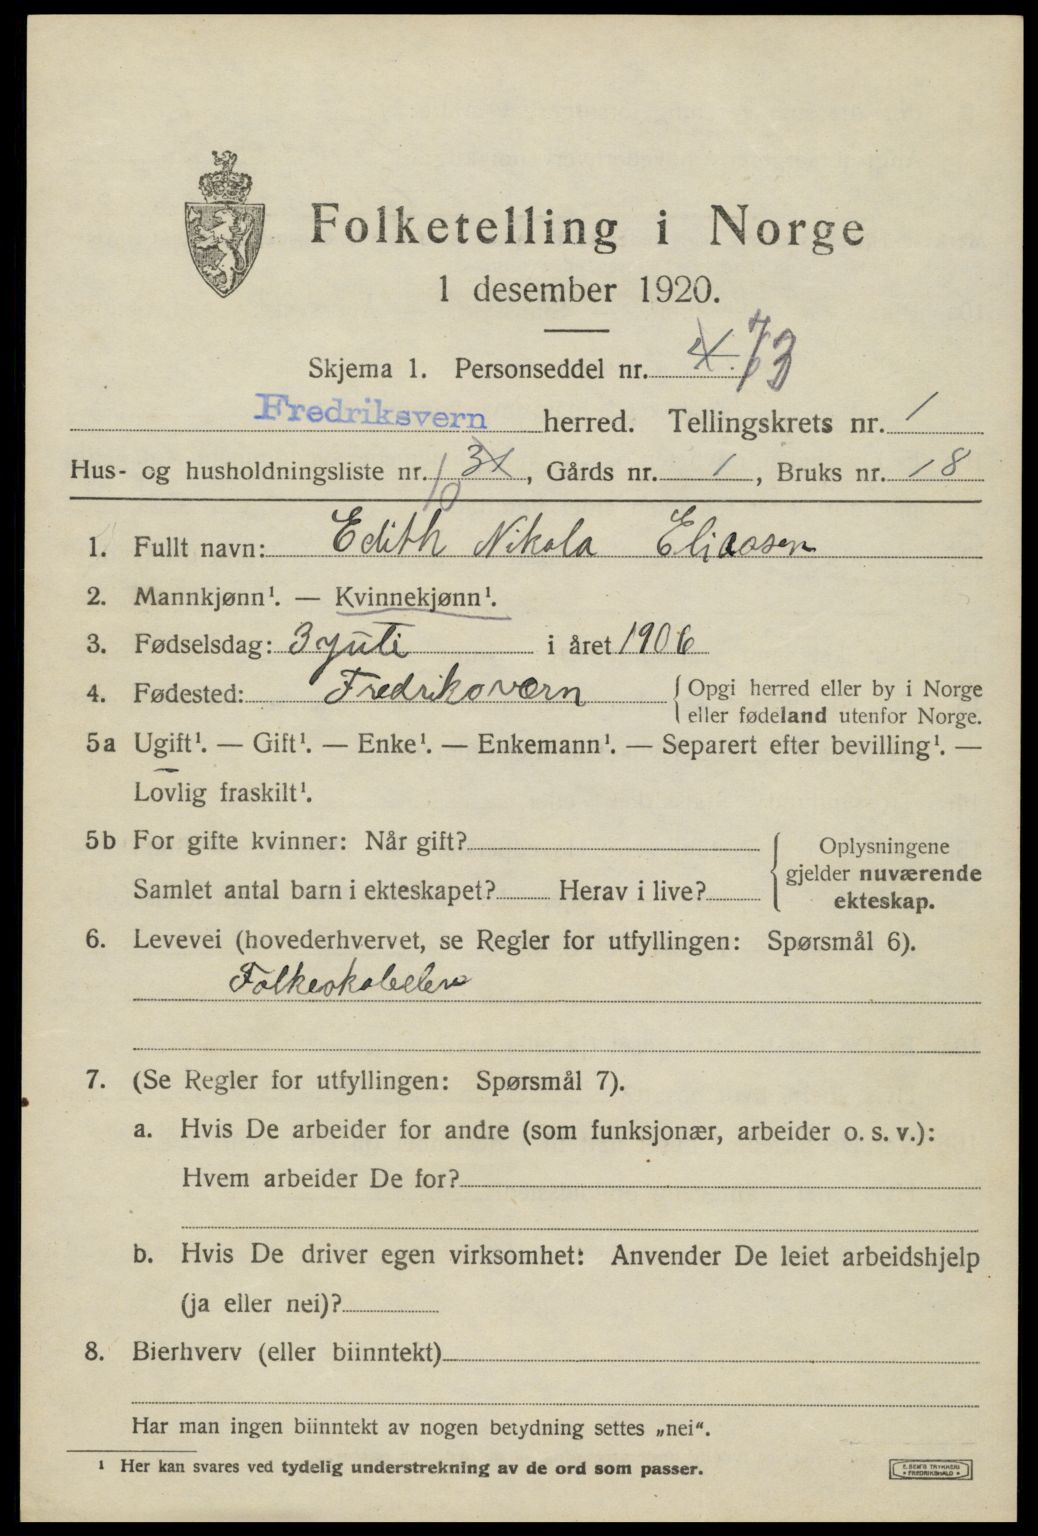 Folketelling i Norge
1 desember 1920.
Skjema 1. Personseddel nr. 4. 73
Fredriksvern herred. Tellingskrets nr. 1
Hus- og husholdningsliste nr. 31 10, Gårds nr. 1, Bruks nr. 18
1. Fullt navn: Edith Nikola Eliassen
2. Mannkjønn¹. — Kvinnekjønn¹.
3. Fødselsdag: 3 juli i året 1906
4. Fødested: Fredriksværn { Opgi herred eller by i Norge
eller fødeland utenfor Norge.
5a Ugift¹. — Gift¹. — Enke¹. — Enkemann¹. — Separert efter bevilling¹. —
Lovlig fraskilt¹.
5b For gifte kvinner: Når gift?
Samlet antal barn i ekteskapet? Herav i live?
Oplysningene
gjelder nuværende
ekteskap.
6. Levevei (hovederhvervet, se Regler for utfyllingen: Spørsmål 6).
Folkeskoleelev
7. (Se Regler for utfyllingen: Spørsmål 7).
a. Hvis De arbeider for andre (som funksjonær, arbeider o. s. v.):
Hvem arbeider De for?
b. Hvis De driver egen virksomhet: Anvender De leiet arbeidshjelp
(ja eller nei)?
8. Bierhverv (eller biinntekt)
Har man ingen biinntekt av nogen betydning settes „nei“.
¹ Her kan svares ved tydelig understrekning av de ord som passer.
E. SEM'S TRYKKERI
FREDRIKSHALD